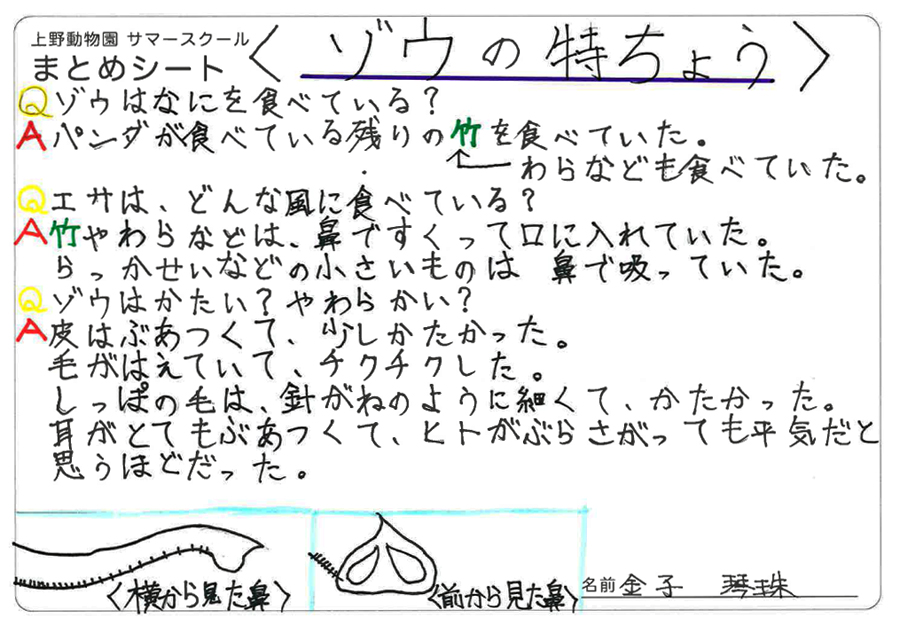 上野動物園 サマースクール
まとめシート
〈ゾウの特ちょう〉
Qゾウはなにを食べている?
Aパンダが食べている残りの竹を食べていた。
わらなども食べていた。
Qエサは、どんな風に食べている?
A竹やわらなどは、鼻ですくって口に入れていた。
らっかせいなどの小さいものは 鼻で吸っていた。
Qゾウはかたい?やわらかい?
A皮はぶあつくて、少しかたかった。
毛がはえていて、チクチクした。
しっぽの毛は、針がねのように細くて、かたかった。
耳がとてもぶあつくて、ヒトがぶらさがっても平気だと
思うほどだった。
〈横から見た鼻〉
〈前から見た鼻〉
名前 金子 琴珠